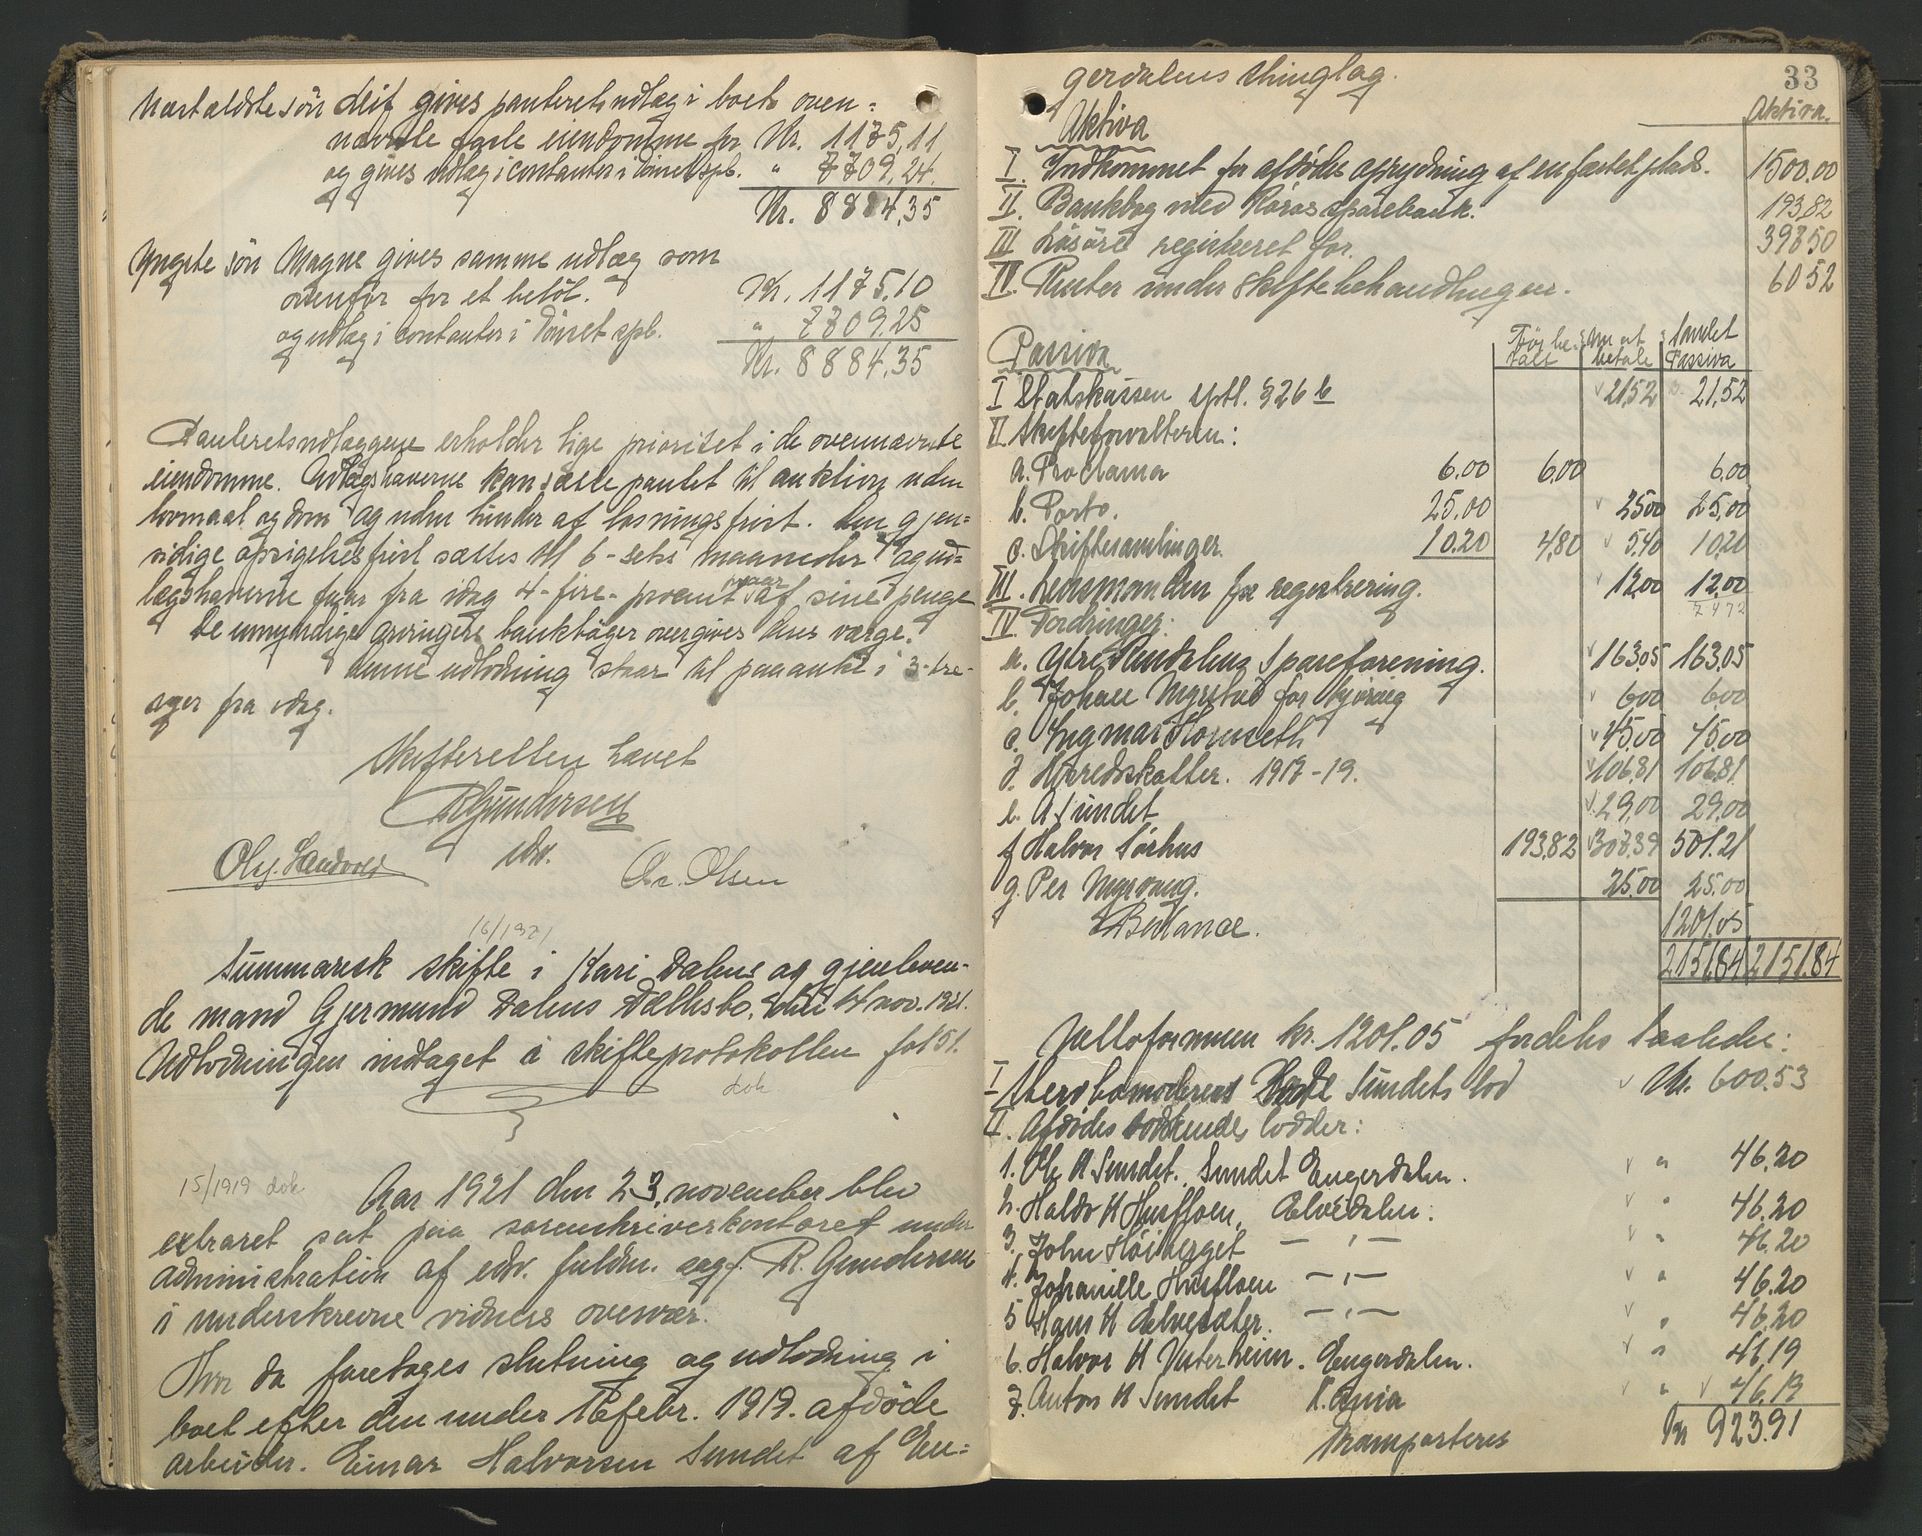 Næstældste søn Leif gives panteretsudlæg i boets oven-
nævnte faste eiendomme for Kr. 1175,11
og gives udlæg i contanter i Tönset spb. " 7709,24
Kr. 8884,35
Yngste søn Magne gives samme udlæg som
ovenfor for et beløb. Kr. 1175,10
og udlæg i contanter i Tönset spb. " 7709,25
Kr. 8884,35
Panteretsudlæggene erholder lige prioritet i de ovennævnte
eiendomme. Udlægshaverne kan sætte pantet til auktion uden
lovmaal og dom og uden hinder af løsningsfrist. Den gjen-
sidige opsigelsesfrist sættes til 6-seks maaneder og ud-
lægshaverne faar fra idag 4-fire- procent paar af sine penge
De umyndige arvingers bankbøger overgives deres værge.
Denne udlodning staar til paaanke i 3-tre-
uger fra idag.
Skifteretten hævet
R Gundersen
edv.
Olaf Sandvold Chr. Olsen
16/1921
Summarisk skifte i Kari Dalus og gjenleven-
de mand Gjermund Dalus Dølhsbo, den 4 nov. 1921.
Udlodningen indtaget i skifteprotokollen fol 51.
dok
15/1919 dok
Aar 1921 den 23 november blev
extraret sat paa sorenskriverkontoret under
administration af edv. fuldm. sagf. R. Gundersen
i underskrevne vidners overvær.
Hvor da foretages slutning og udlodning i
boet efter den under 16 febr. 1919. afdøde
arbeider. Einar Halvorsen Sundet af En-
33
gerdalens thinglag.
Aktiva Aktiva.
I. Indkommet for afdødes oprydning af en fæstet plads. 1500.00
II. Bankbog med Röros sparebank. 193,82
III Løsøre registreret for. 39850
IV. Renter under skiftebehandlingen. 6052
Passiva Før be- talt Um at betale Samlet Passiva
I Statskassen sptl. § 26 b 21,52 21,52
II Skifteforvalteren:
a. Proclama 6.00 6.00 6.00
b. Porto. 25,00 2500 25,00
c. Skiftesamlinger. 10.20 4,80 5.40 10,20
III. Lensmanden for registrering. 12,00 12,00
7472
IV Fordringer:
a. Ytre Rendalens Spareforening. 163,05 163,05
b. Johan Myrstad for 600 6,00
c. Ingmar Hornseth 45,00 45,00
d. Herredskatter. 1917-19. 106,81 106,81
e. A Sundet 29,00 29,00
f Halvor Sørhus 193,82 307,39 501.21
g. Per Nyvang. 25.00 25.00
Ballance. 1201.05
2151,84 2151.84
Nettoformuen kr. 1201.05 fordeles saaledes:
I Stervbomoderens Sundets lod Kr. 600.53
II. Afdødes lodder:
1. Ole H Sundet. Sundet Engerdalen. " 46.20
2. Haldo H Husfloen, Elvedalen: " 46.20
3. John Höiberget — " — " 46.20
4. Johanille Husfloen — " — " 46.20
5 Hans H Elvesæter. — " — " 46.20
6. Halvor H Vesterheim. Engerdalen. " 46,19
7. Anton H Sundet " 46,19
Transporteres Kr 923.91